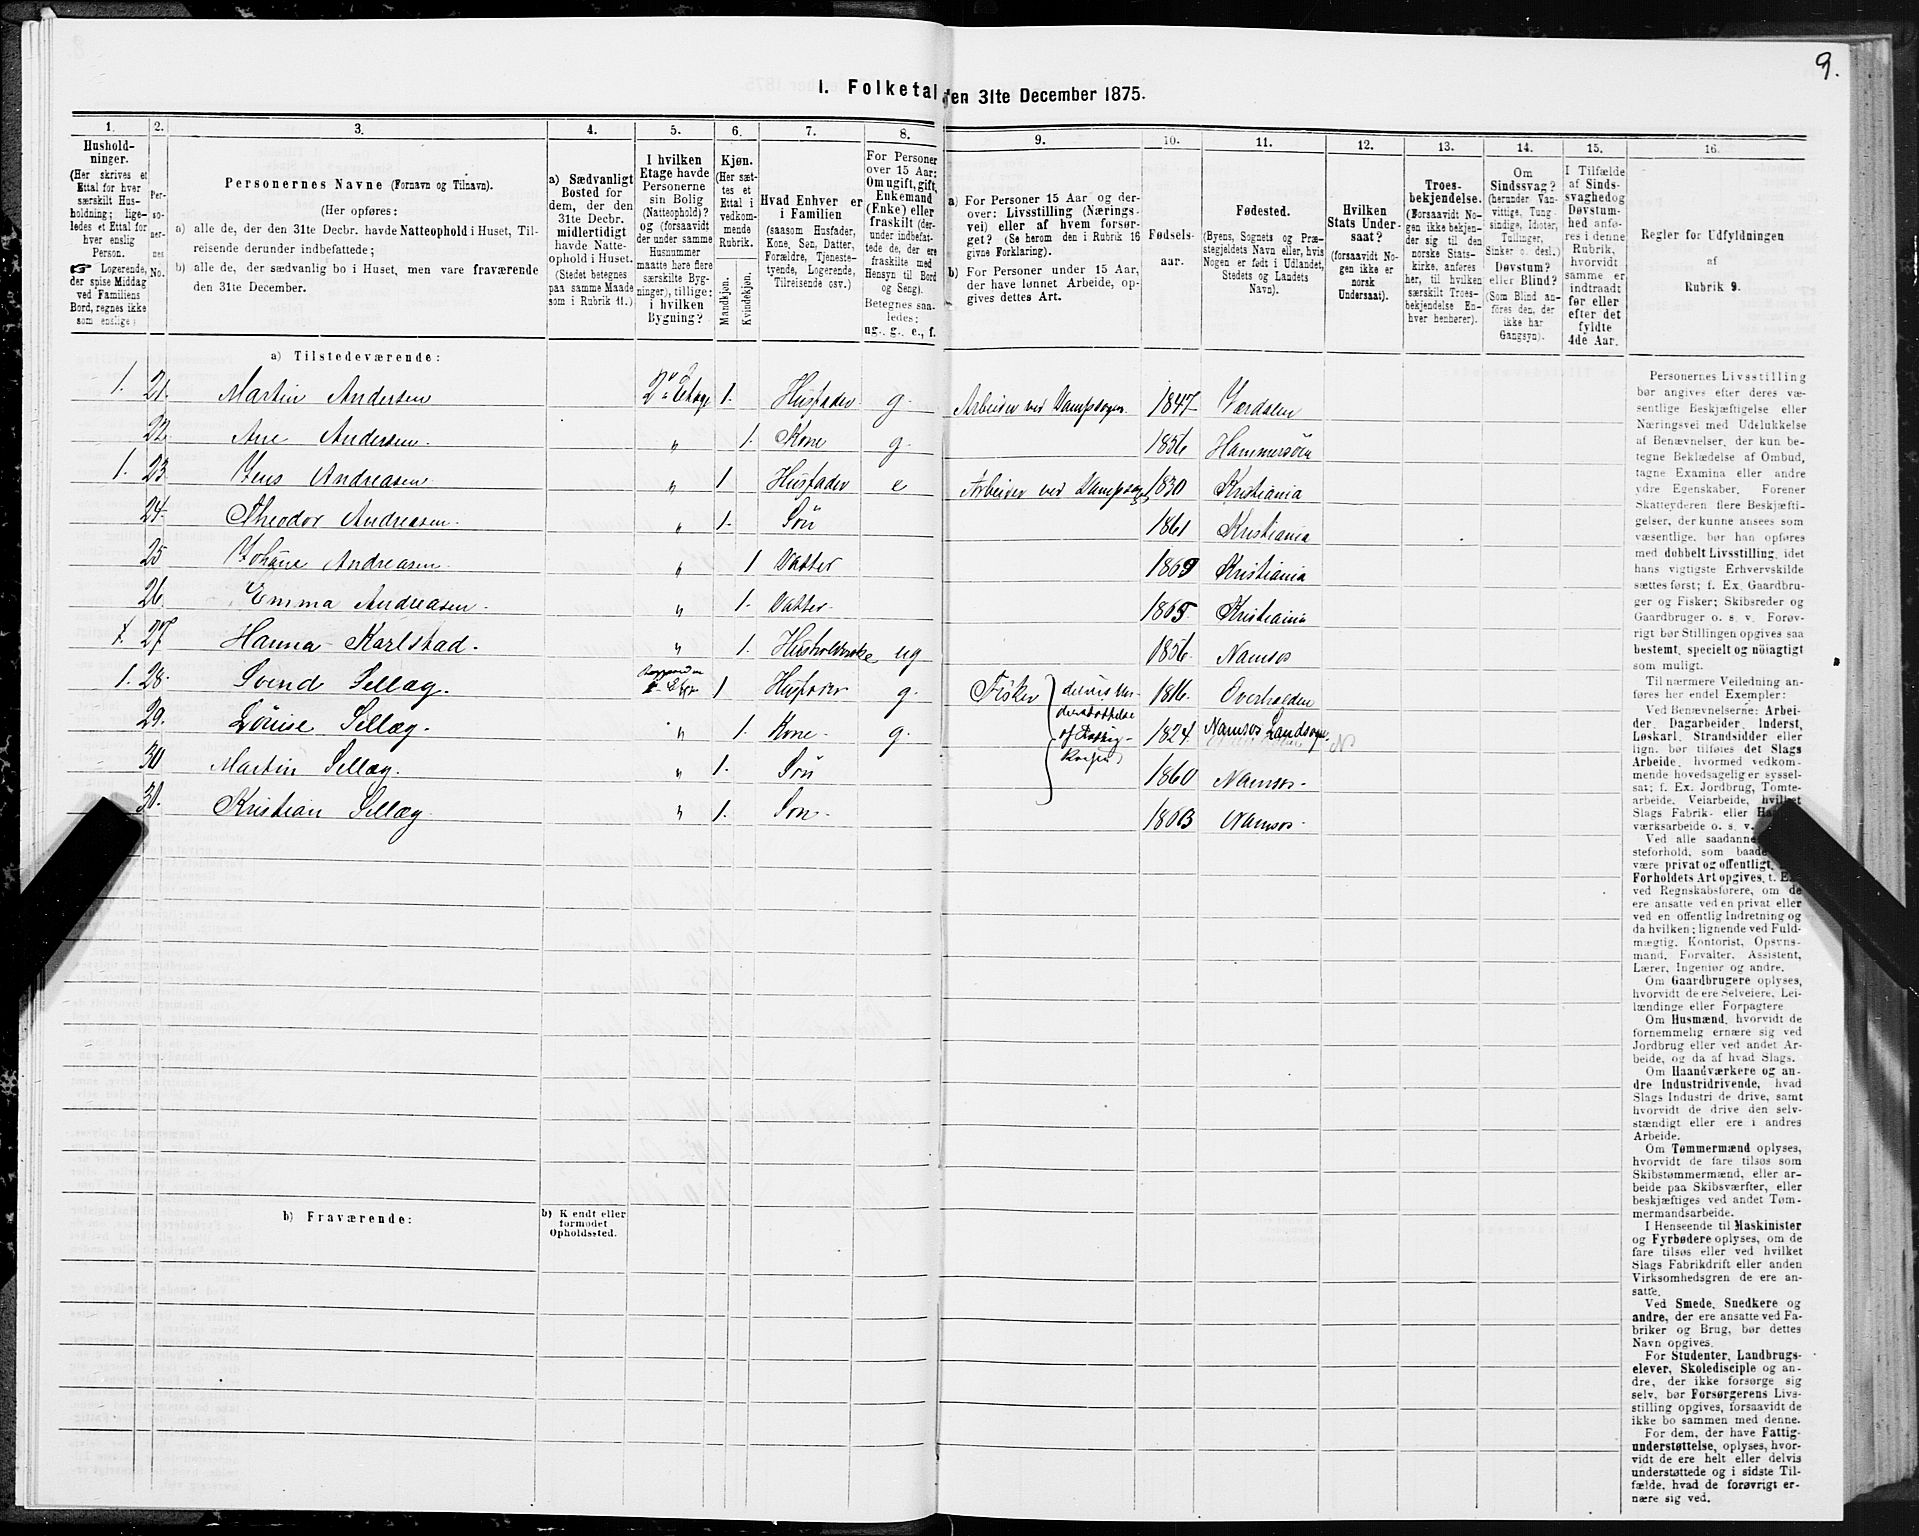 9.
I. Folketal den 31te December 1875.
1. 2. 3. 4. 5. 6. 7. 8. 9. 10. 11. 12. 13. 14. 15. 16.
Hushold-
ninger.
(Her skrives et
Ettal for hver
særskilt Hus-
holdning; lige-
ledes et Ettal for
hver enslig
Person.
☞ Logerende,
der spise Middag
ved Familiens
Bord, regnes ikke
som enslige)
Per-
so-
ner-
nes
No.
Personernes Navne (Fornavn og Tilnavn).
(Her opføres:
a) alle de, der den 31te Decbr. havde Natteophold i Huset, Til-
reisende derunder indbefattede;
b) alle de, der sædvanlig bo i Huset, men vare fraværende
den 31te December.
a) Sædvanligt
Bosted for
dem, der den
31te Decbr.
midlertidigt
havde Natte-
ophold i Huset.
(Stedet betegnes
paa samme Maade
som i Rubrik 11.)
I hvilken
Etage havde
Personerne
sin Bolig
(Natteophold)?
og (forsaavidt
der under samme
Husnummer
maatte høre flere
særskilte Byg-
ninger), tillige:
i hvilken
Bygning?
Kjøn.
(Her sæt-
tes et
Ettal i
vedkom-
mende
Rubrik.
Mandkjøn.
Kvindekjøn.
Hvad Enhver er
i Familien
(saasom Husfader,
Kone, Søn, Datter,
Forældre, Tjeneste-
tyende, Logerende,
Tilreisende osv.)
For Personer
over 15 Aar:
Om ugift, gift,
Enkemand
(Enke) eller
fraskilt (der-
under indbefat-
tede de, der ere
fraskilte med
Hensyn til Bord
og Seng).
Betegnes saa-
ledes:
ug., g., e., f.
a) For Personer 15 Aar og der-
over: Livsstilling (Nærings-
vei) eller af hvem forsør-
get? (Se herom den i Rubrik 16
givne Forklaring).
b) For Personer under 15 Aar,
der have lønnet Arbeide, op-
gives dettes Art.
Fødsels-
aar.
Fødested.
(Byens, Sognets og Præ-
stegjeldets Navn eller, hvis
Nogen er født i Udlandet,
Stedets og Landets
Navn).
Hvilken
Stats Under-
saat?
(forsaavidt No-
gen ikke er
norsk
Undersaat).
Troes-
bekjendelse.
(Forsaavidt No-
gen ikke bekjen-
der sig til den
norske Stats-
kirke, anføres
her, til hvilken
særskilt Troes-
bekjendelse En-
hver henhører).
Om
Sindssvag?
(herunder Van-
vittige, Tung-
sindige, Idioter,
Tullinger,
Sinker o. desl.)
Døvstum?
eller Blind?
(Som Blind an-
føres den, der
ikke har
Gangsyn).
I Tilfælde
af Sinds-
svaghed og
Døvstum-
hed anfø-
res i denne
Rubrik,
hvorvidt
samme er
indtraadt
før eller
efter det
fyldte
4de Aar.
Regler for Udfyldningen
af
Rubrik 9.
a) Tilstedeværende:
1. 21. Martin Andersen 2 Etage 1. Husfader g. Arbeider ved Dampsagen. 1847 Værdalen
22. Ane Andersen. " 1. Kone g. 1856 Hammersøen
1. 23 Jens Andreasen. " 1 Husfader e Arbeider ved Dampsagen 1830 Kristiania
24. Theodor Andreasen. " 1. Søn 1861 Kristiania
25 Johane Andreasen. " 1 Datter 1869 Kristiania
26. Emma Andreasen. " 1. Datter. 1865 Kristiania
1. 27 Hanna Karlstad. " 1. Husholderske ug 1856. Namsos
1. 28. Svend Sellæg. 1 Husfader g. Fisker delvis Un- 1816. Overhalden
29. Louise Sellæg. " 1. Kone. g. derstøttelse af Fattig- 1824 Namsos Landsogn.
30 Martin Sellæg. " 1. Søn Kassen 1860 Namsos.
30. Kristian Sellæg. " 1. Søn. 1863 Namsos.
b) Fraværende:
b) Kjendt eller
formodet
Opholdssted.
Personernes Livsstilling
bør angives efter deres væ-
sentlige Beskjæftigelse eller
Næringsvei med Udelukkelse
af Benævnelser, der kun be-
tegne Beklædelse af Ombud,
tagne Examina eller andre
ydre Egenskaber. Forener
Skatteyderen flere Beskjæfti-
gelser, der kunne ansees som
væsentlige, bør han opføres
med dobbelt Livsstilling, idet
hans vigtigste Erhvervskilde
sættes først; f. Ex. Gaardbru-
ger og Fisker; Skibsreder og
Gaardbruger o. s. v. Forøv-
rigt bør Stillingen opgives saa
bestemt, specielt og nøiagtigt
som muligt.
Til nærmere Veiledning an-
føres her endel Exempler:
Ved Benævnelserne: Arbei-
der, Dagarbeider, Inderst,
Løskarl, Strandsidder eller
lign. bør tilføies det Slags
Arbeide, hvormed vedkom-
mende hovedsagelig er syssel-
sat; f. Ex. Jordbrug, Tomte-
arbeide, Veiarbeide, hvilket
Slags Fabrik- eller
værksarbeide o. s. v.
Ved alle saadanne
steforhold, som baade
være privat og offentligt,
Forholdets Art opgives, t. Ex.
ved Regnskabsførere, om de
ere ansatte ved en privat eller
ved en offentlig Indretning og
da hvilken; lignende ved Fuld-
mægtig, Kontorist, Opsyns-
mand, Forvalter, Assistent,
Lærer, Ingeniør og andre.
Om Gaardbrugere oplyses,
hvorvidt de ere Selveiere, Lei-
lændinge eller Forpagtere
Om Husmænd, hvorvidt de
fornemmelig ernære sig ved
Jordbrug eller ved andet Ar-
beide, og da af hvad Slags.
Om Haandværkere og an-
dre Industridrivende, hvad
Slags Industri de drive, samt
hvorvidt de drive den selv-
stændigt eller ere i andres
Arbeide.
Om Tømmermænd oplyses,
hvorvidt de fare tilsøs som
Skibstømmermænd, eller ar-
beide paa Skibsværfter, eller
beskjæftiges ved andet Tøm-
mermandsarbeide.
I Henseende til Maskinister
og Fyrbødere oplyses, om de
fare tilsøs eller ved hvilket
Slags Fabrikdrift eller anden
Virksomhedsgren de ere an-
satte.
Ved Smede, Snedkere og
andre, der ere ansatte ved Fa-
briker og Brug, bør dettes
Navn opgives.
For Studenter, Landbrugs-
elever, Skoledisciple og an-
dre, der ikke forsørge sig
selv, bør Forsørgerens Livs-
stilling opgives, forsaavidt de
ikke bo sammen med denne.
For dem, der have Fattig-
understøttelse, oplyses, hvor-
vidt de ere helt eller delvis
understøttede og i sidste Til-
fælde, hvad de forøvrigt er-
nære sig ved.